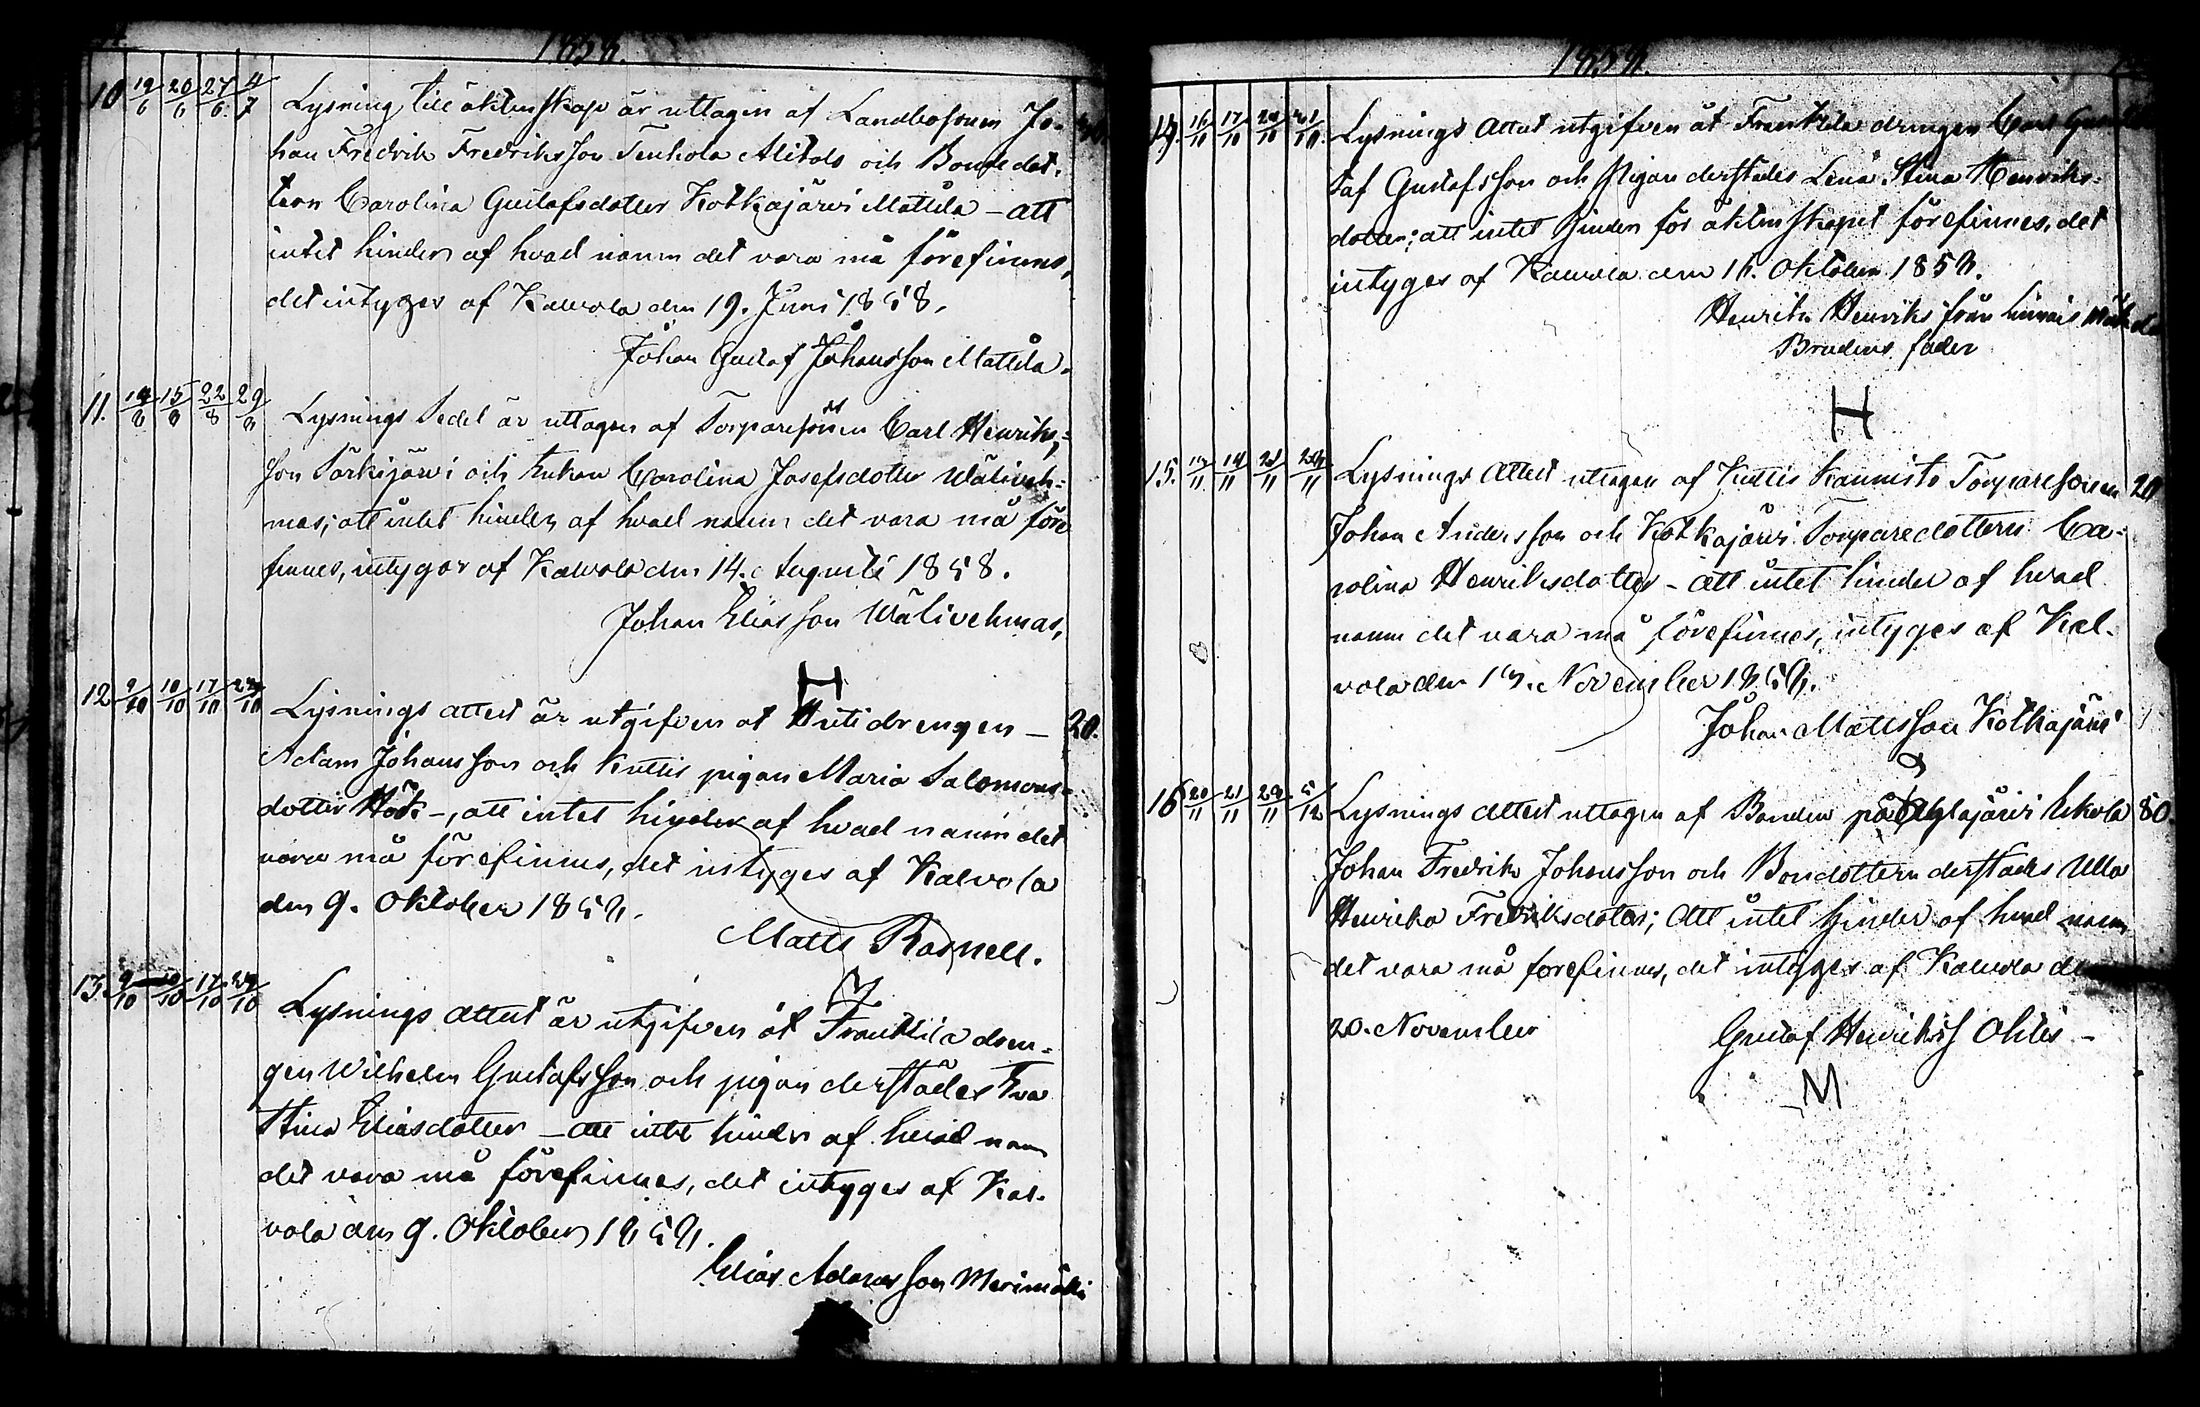 1858.
10 19/6 20/6 27/6 4/7 Lysning till äktenskap är uttagen af Landbosonen Jo-
han Fredrik Fredriksson Tenhola Alitalo och Bondedot-
tern Carolina Gustafsdotter Kotkajärvi Mattila - att
intet hinder af hvad namn det vara må förefinnes,
det intyges af Kalvola den 19. Juni 1858.
Johan Gustaf Johansson Mattila.
11. 14/8 15/8 22/8 29/8 Lysnings Sedel är uttagen af Torparesonen Carl Henriks-
son Särkijärvi och Enkan Carolina Josefsdotter Wäliveh-
mas; att intet hinder af hvad namn det vara må före
finnes, intygar af Kalvola den 14. Augusti 1858.
Johan Eliasson Wälivehmas,
12 9/10 10/10 17/10 24/10 Lysnings attest är utgifven åt Huti drengen - 20.
Adam Johansson och Kuttis pigan Maria Salomons-
dotter Höök -, att intet hinder af hvad namn det
vara må förefinnes, det intyges af Kalvola
den 9. Oktober 1858.
Matts Rasnell.
13. 9/10 10/10 17/10 24/10 Lysnings attest är utgifven åt Franttila dren-
gen Wilhelm Gustafsson och pigan derstädes Eva
Stina Eliasdotter - att intet hinder af hvad namn
det vara må förefinnes, det intyges af Kal-
vola den 9. Oktober 1858.
Elias Adamsson Merimäki
1858.
14. 16/10 17/10 24/10 31/10. Lysnings Attest utgifven åt Franttila drengen Carl Gus
taf Gustafsson och Pigan derstädes Lena Stina Henriks-
dotter; att intet hinder för äktenskapet förefinnes, det
intyges af Kalvola den 16. Oktober 1858.
Henrik Henriks från
Brudens fader
H
15. 13/11 14/11 21/11 28/11 Lysnings Attest uttagen af Kuttis Kannisto Torparesonen 20
Johan Andersson och Kotkajärvi Torparedottern Ca-
rolina Henriksdotter - att intet hinder af hvad
namn det vara må förefinnes, intyges af Kal-
vola den 13. November 1858.
Johan Mattsson Kotkajärvi
16 20/11 21/11 28/11 5/12 Lysnings attest uttagen af Bonden på Äglajärvi Ukola 80.
Johan Fredrik Johansson och Bondottern derstädes Ulla
Henrika Fredriksdotter; att intet hinder af hvad namn
det vara må forefinnes, det intyges af Kalvola den
20. November Gustaf Henrikss Ohlis -
M